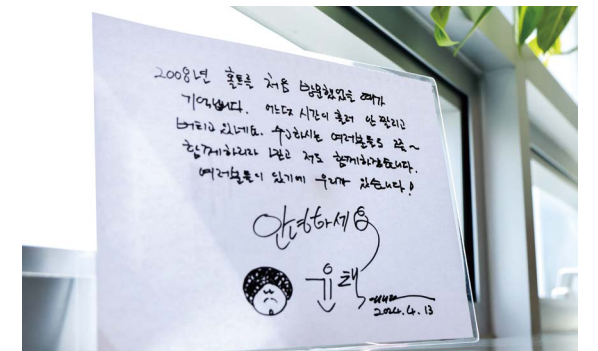 2008년 홀트를 처음 방문했었을 때가
기억납니다. 어느덧 시간이 흘러 안 짤리고
버티고 있네요. 수고하시는 여러분들도 쭈욱~
함께하리라 믿고 저도 함께하겠습니다.
여러분들이 있기에 우리가 있습니다!
안녕하세요
윤택
2024.4.13